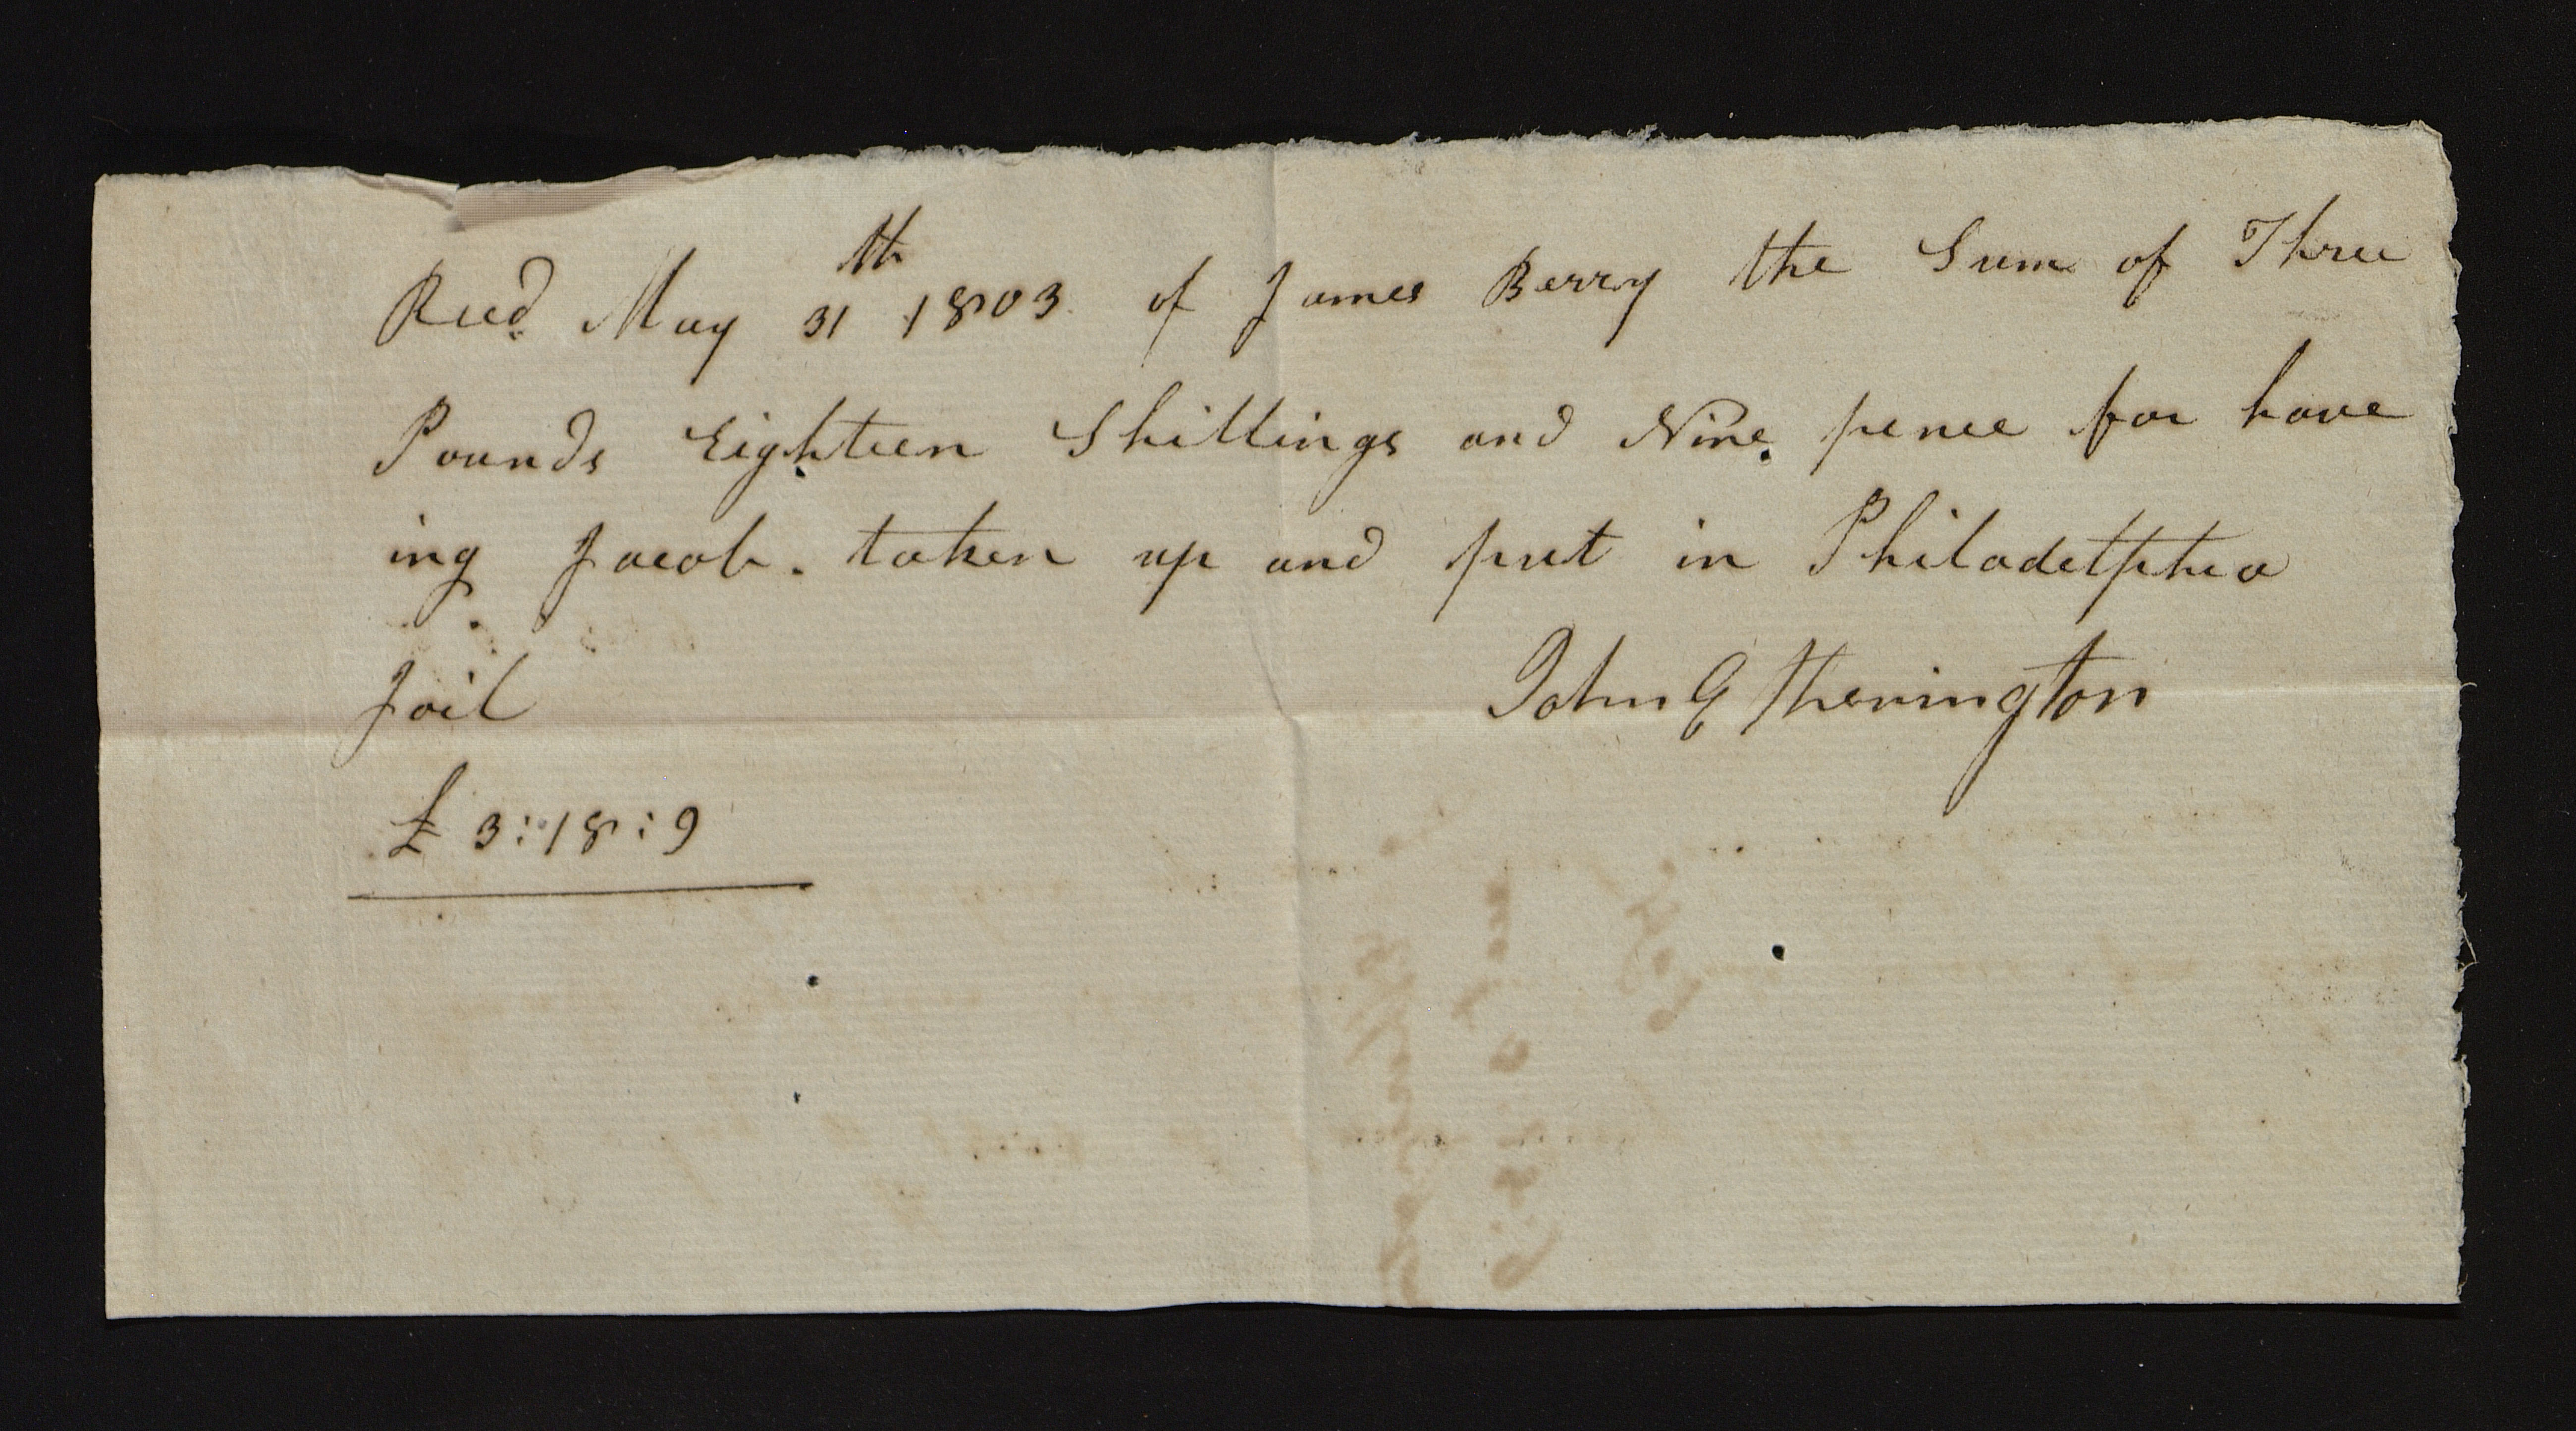 Recd. May 31th 1803 of James Berry the Sum of Three
Pounds Eighteen Shillings and Nine pence for have
ing Jacob. taken up and put in Philadelphia
Jail
John Etherington
£ 3:18:9